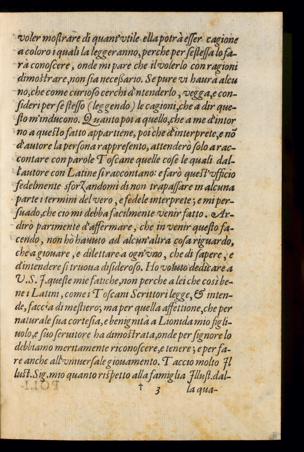 voler mostrare di quant'utile ella potrà esser cagione
a coloro i quali la leggeranno, perche per se stessa lo fa-
rà conoscere, onde mi pare che il volerlo con ragioni
dimostrare, non sia necessario. Se pure vi haurà alcu
no, che come curioso cerchi d'ntenderlo, vegga, e con-
sideri per se stesso (leggendo) le cagioni, che a dir que-
sto m'inducono. Quanto poi a quello, che a me d'intor
no a questo fatto appartiene, poi che d'interprete, e nõ
d'autore la persona rappresento, attenderò solo a rac-
contare con parole Toscane quelle cose le quali dal-
l'autore con Latine si raccontano: e farò quest'vfficio
fedelmente sforzandomi di non trapassare in alcuna
parte i termini del vero, e fedele interprete; e mi per-
suado, che ciò mi debba facilmente venir fatto. Ar-
dirò parimente d'affermare, che in venir questo fa-
cendo, non hò hauuto ad alcun'altra cosa riguardo,
che a giouare, e dilettare a ogn'vno, che di sapere, e
d'intendere si truoua disideroso. Ho voluto dedicare a
V.S. J. queste mie fatiche, non perche a lei che così be-
ne i Latini, come i Toscani Scrittori legge, & inten-
de, faccia di mestiero; ma per quella affettione, che per
naturale sua cortesia, e benignità a Lionida mio figli-
uolo, e suo seruitore ha dimostrata, onde per signore lo
debbiamo meritamente riconoscere, e tenere; e per fa-
re anche all'vniuersale giouamento. Taccio molto Jl
lust. Sig. mio quanto rispetto alla famiglia Jllust. dal-
† 3 la qua-